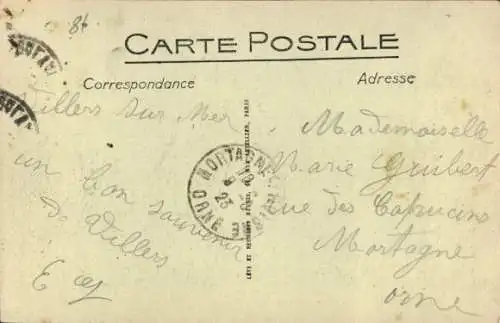 86
CARTE POSTALE
Correspondance
Adresse
Villers sur Mer
un bon souvenir
de Villers
MORTAGNE
ORNE
LEVY ET NEURDEIN RÉUNIS, 44, RUE LETELLIER, PARIS
Mademoiselle
Marie Guibert
rue des Capucins
Mortagne
orne